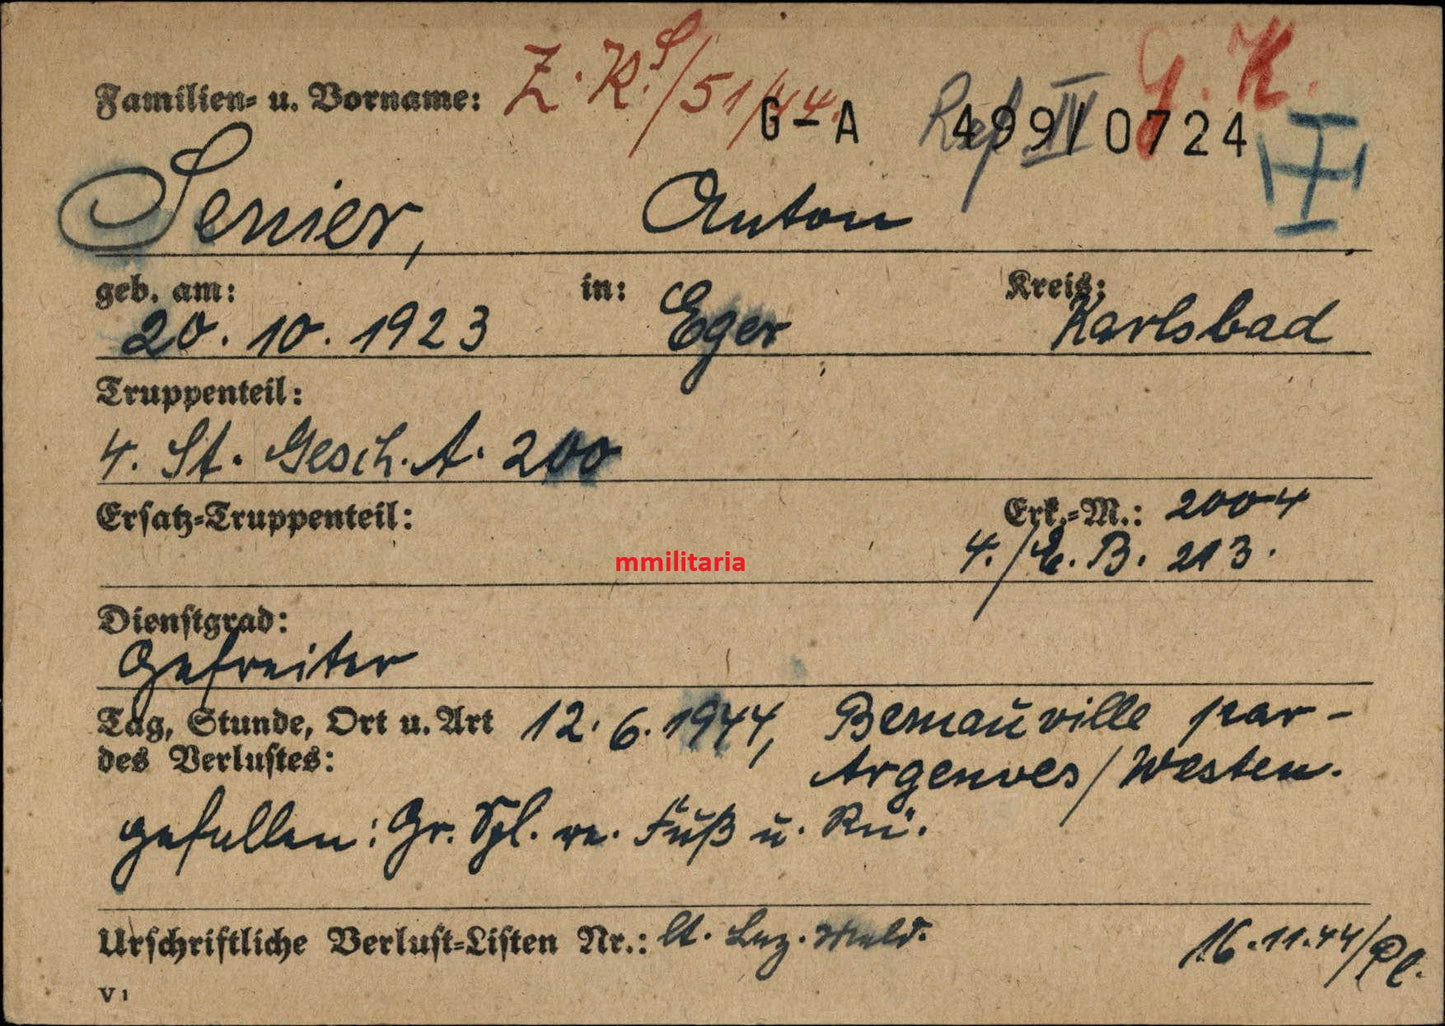 Familien- u. Vorname: Z. K. S/51/44. G-A 499/0724 G. K.
Ref. IV
Senier, Anton
geb. am: in: Kreis:
20. 10. 1923 Eger Karlsbad
Truppenteil:
4. St. Gesch. A. 200
Ersatz-Truppenteil: Erk.-M.: 2004
4./E. B. 213.
mmilitaria
Dienstgrad:
Gefreiter
Tag, Stunde, Ort u. Art 12. 6. 1944, Bemauville par-
des Verlustes: Argences/Westen.
gefallen: Gr. Spl. re. Fuß u. Rü.
Urschriftliche Verlust-Listen Nr.: lt. Laz. Meld. 16.11.44/Pl.
V1